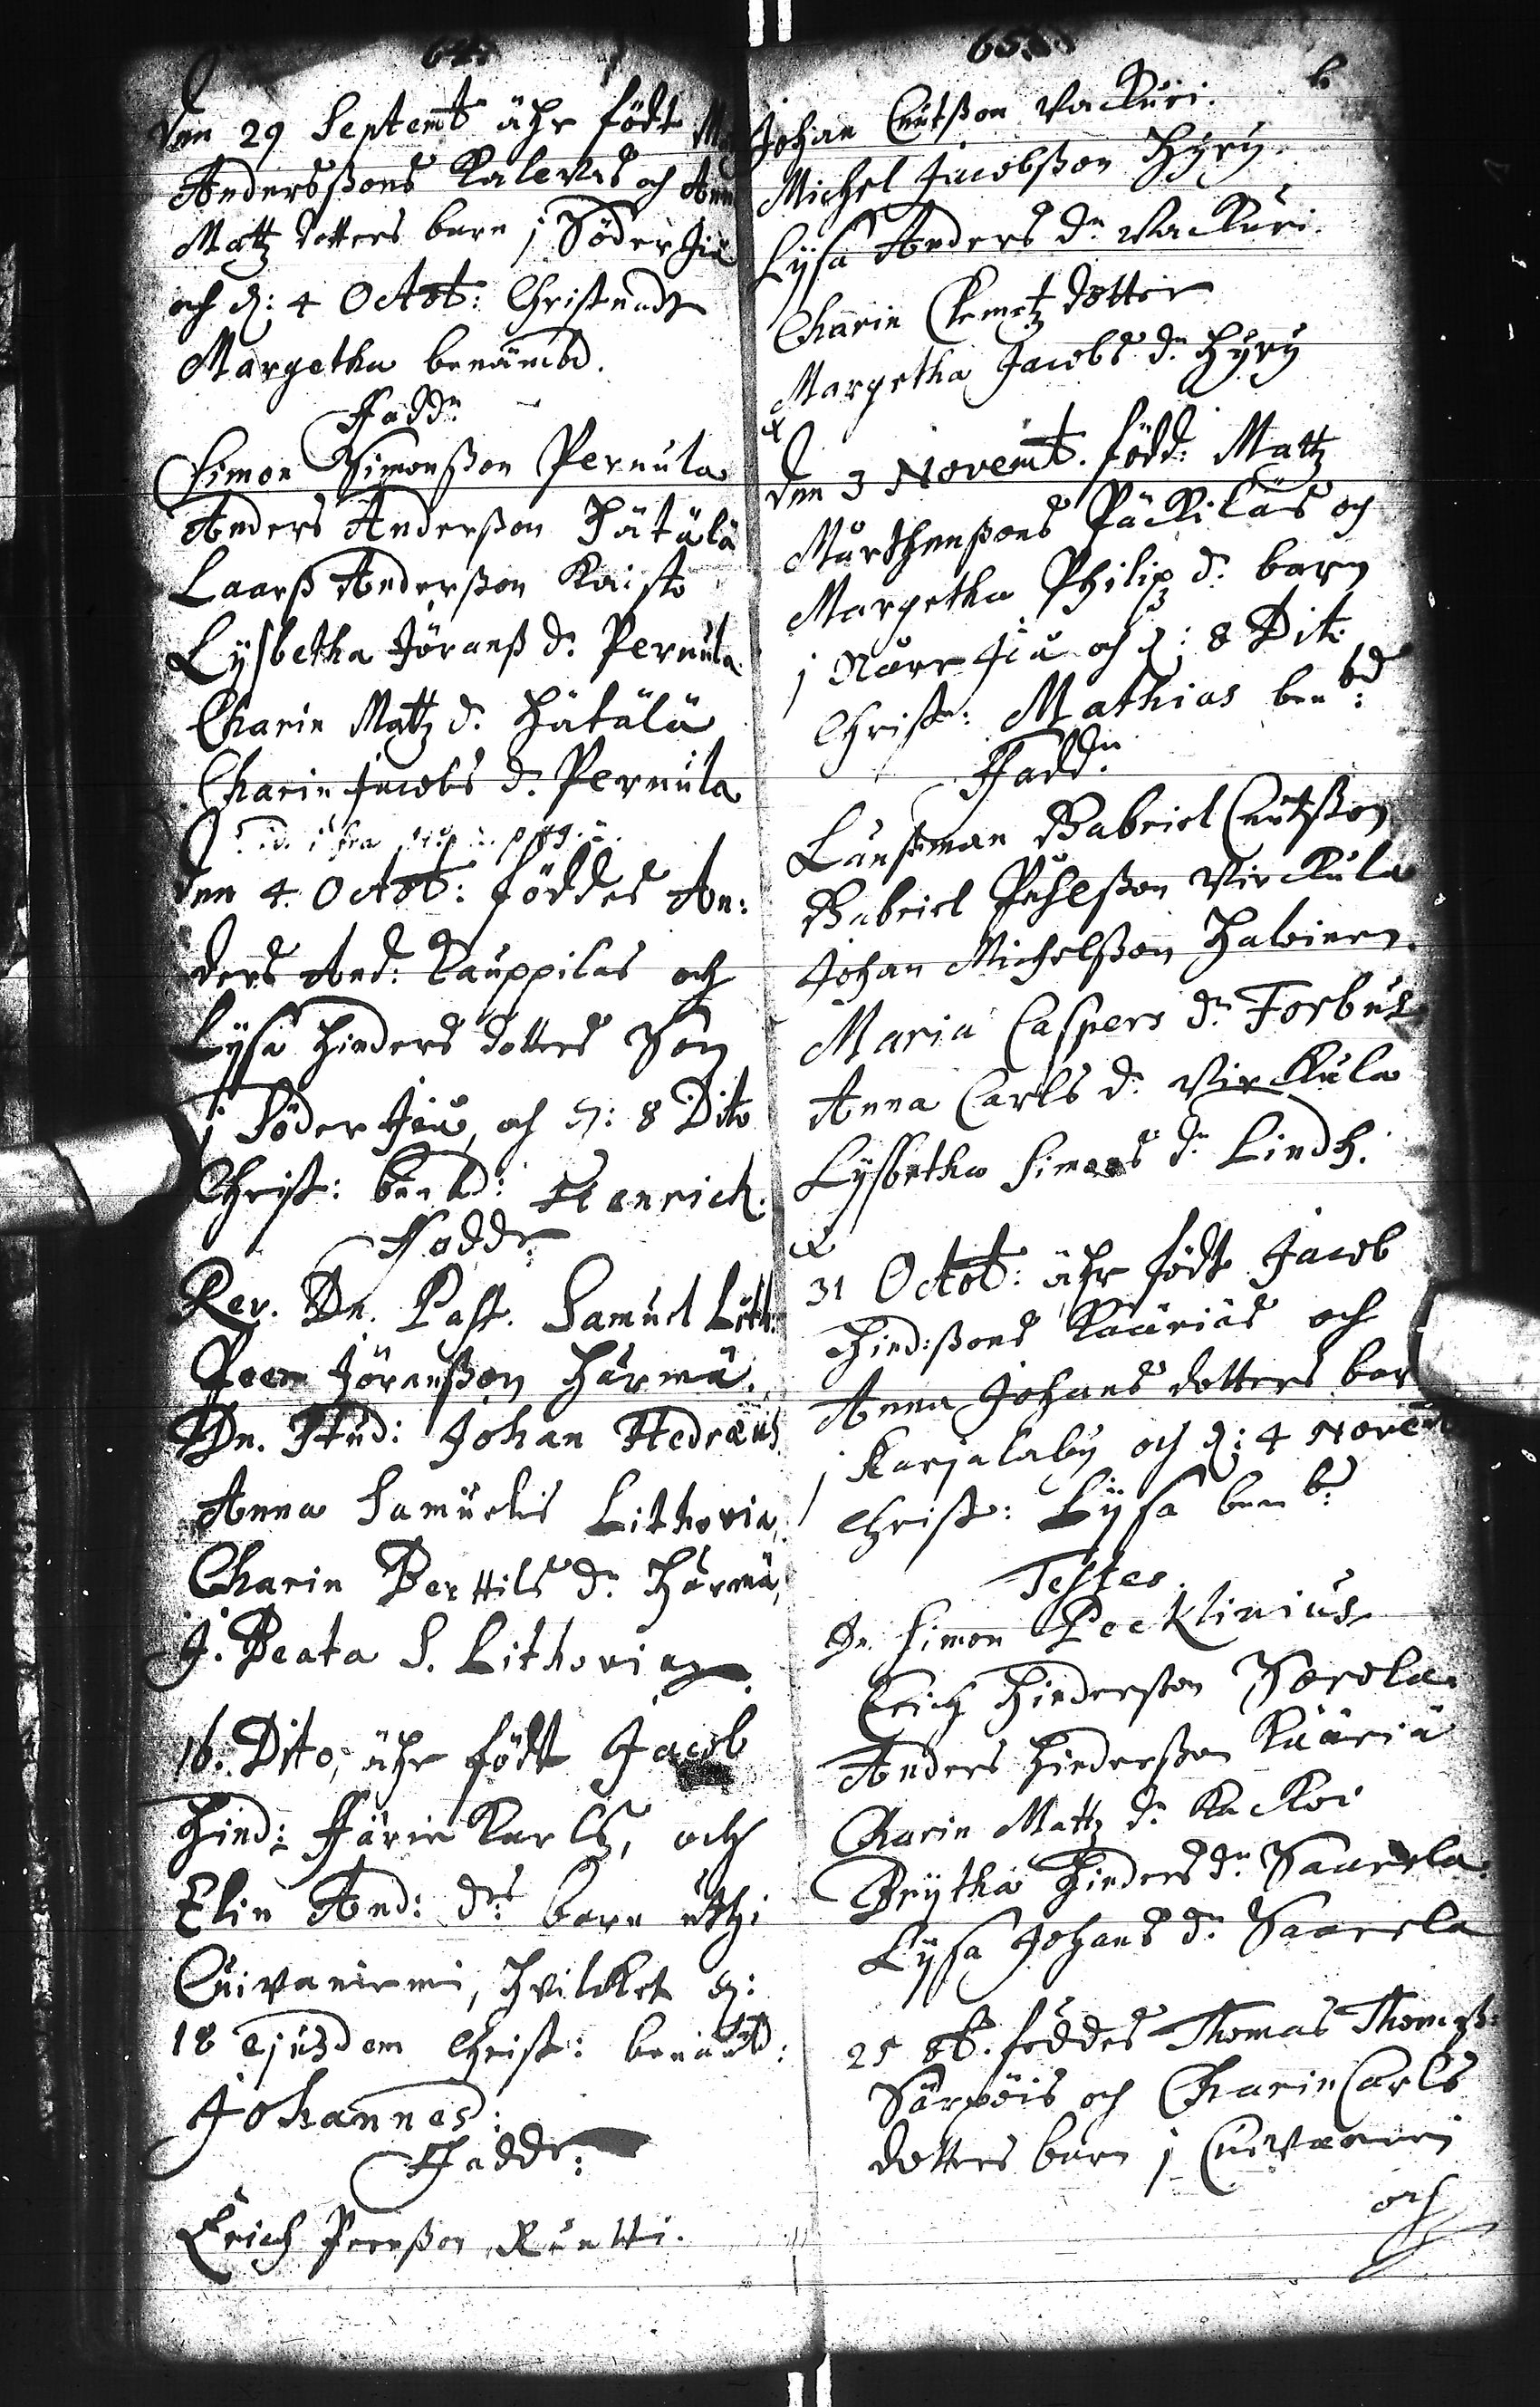 64.
Den 29 Septemb ähr födt
Andersßons Kalevas och Ann
Mattz dotters barn j Söder Jio
och d: 4 Octob: Christnadt
Margetha benämbd.
Fadd:
Simon Simonßon Pernula
Anders Anderßon Hätälä
Laarß Anderßon Kaisto
Lysbetha Jöranß d: Pernula
Charin Mattz d: Hätälä
Charin Jacobs d: Pernula
Den 4 Octob: föddes An:
ders And: Kauppilas och
Lysa Hinders dotters Son
j Söder Jiu, och d: 8 Dito
Christ: benbd: Henrich.
Fadde:
Rev. Dn. Past. Samuel Lith:
Peer Jöranßon Härmä.
Dn. Stud: Johan Hedræus
Anna Samuelis Lithovia,
Charin Berttils d: Härmä,
J. Beata S. Lithovia
16. Dito, ähr födt Jacob
Hind: Färin Karls, och
Elin And: drs barn uthi
Cuivaniemi, hvilcket d:
18 ejusdem Christ: benämbd:
Johannes:
Fadde:
Erich Peerßon Runtti.
65.
Johan Cnutßon Vackuri.
Michel Jacobßon Hyry.
Lysa Anders d: Vackuri.
Charin Clemetz dotter
Margetha Jacobs d: Hyry
Den 3 Novemb. född: Mattz
Mårthenßons Päckiläs och
Margetha Philip d: barn
j Norr Jiu och d: 8 Dito
Christ: Mathias benbd:
Fadd:
Länsman Gabriel Cnutßon
Gabriel Påhlßon Virckula
Johan Michelßon Halvinen.
Maria Caspers d: Forbus
Anna Carls d: Virckula
Lysbetha Simons d: Lindh.
31 Octob: ähr födt Jacob
Hind:ßons Kääriäs och
Anna Johans dotters bar
j Karjalaby och d: 4 Novem
Christ: Lysa benb:
Testes.
Dn. Simon Peeklinius
Erich Hinderßon Sorola
Anders Hinderßon Kääriä
Charin Mattz d: Kackoi
Brytha Hinders d: Saarela
Lysa Johans d: Saarela
25 8b. föddes Thomas Thomæß:
Särpöis och Charin Carls
dotters barn j Cuivaniemi
och